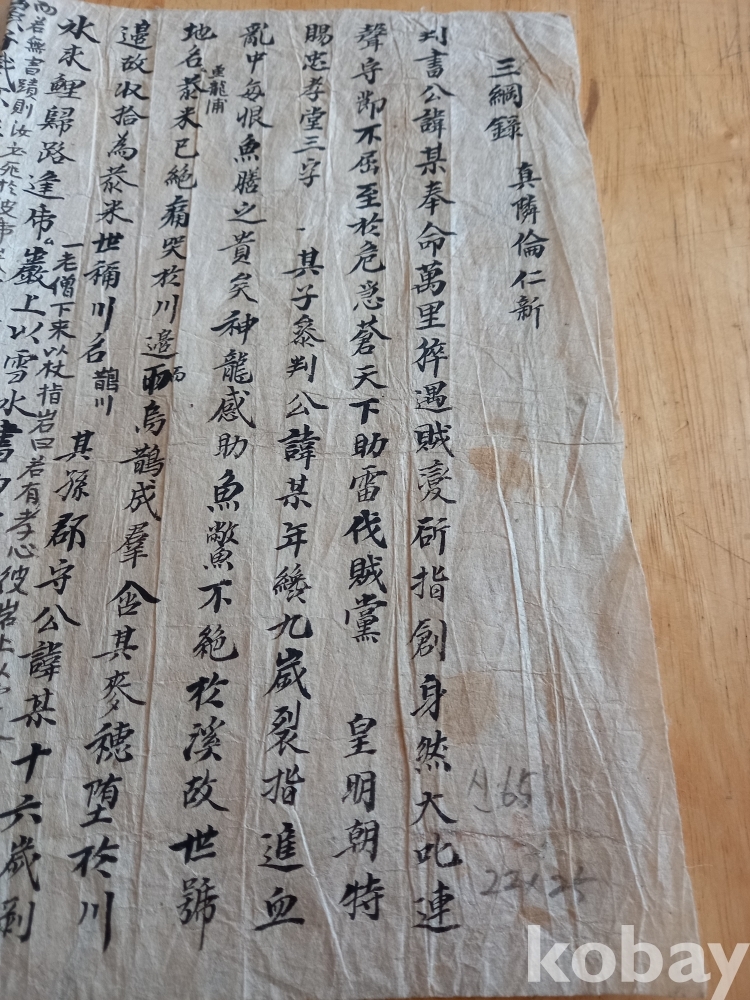 三綱錄 真隣倫仁新
判書公諱某奉命萬里猝遇賊變斫指創身然大叱連
聲守節不屈至於危急蒼天下助雷伐賊黨 皇明朝特
賜忠孝堂三字 一其子參判公諱某年纔九歲裂指進血
亂中每恨魚膳之貴矣神龍感助魚鱉不絶於溪故世號
龍浦
地名
米已絶痛哭於川邊而烏鵲成羣含其麥穗墮於川
邊故收拾為
米世稱川名鵲川 其孫郡守公諱某十六歲
氷來鯉歸路逢虎
一老僧下來以杖指岩曰若有孝心彼岩上以
巖上以雪水書
而若無書蹟則汝必死於彼
신65
22×25
kobay